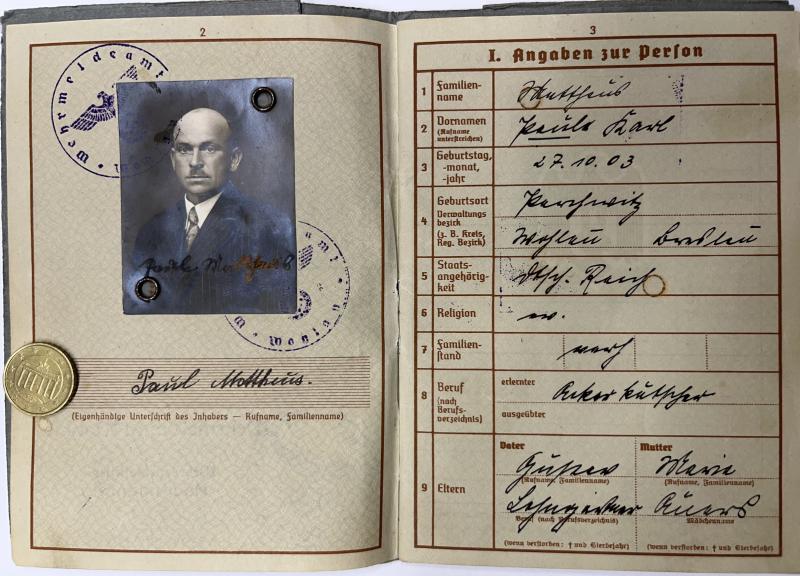 2
Wehrmeldeamt
Wohlau
Paul Mattheus.
(Eigenhändige Unterschrift des Inhabers — Rufname, Familienname)
3
I. Angaben zur Person
1 Familien-
name
Mattheus
2 Vornamen
(Rufname
unterstreichen)
Paul Karl
3 Geburtstag,
-monat,
-jahr
27.10.03
4 Geburtsort
Verwaltungs
bezirk
(z. B. Kreis,
Reg. Bezirk)
Wohlau Breslau
5 Staats-
angehörig-
keit
dtsch. Reich
6 Religion
ev.
7 Familien-
stand
verh
8 Beruf
(nach
Berufs-
verzeichnis)
erlernter
Ackerkutscher
ausgeübter
9 Eltern
Vater
Gustav
(Rufname, Familienname)
Beruf (nach Berufsverzeichnis)
(wenn verstorben: † und Sterbejahr)
Mutter
Marie
(Rufname, Familienname)
Mädchenname
(wenn verstorben: † und Sterbejahr)